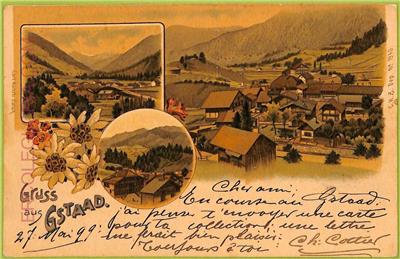 Gruss
aus GSTAAD.
27 Mai 99.
Cher ami,
En course au Gstaad.
j'ai pensé t'envoyer une carte
pour ta collection, une lettre
me ferait bien plaisir.
Toujours à toi:
Ch. Cottier